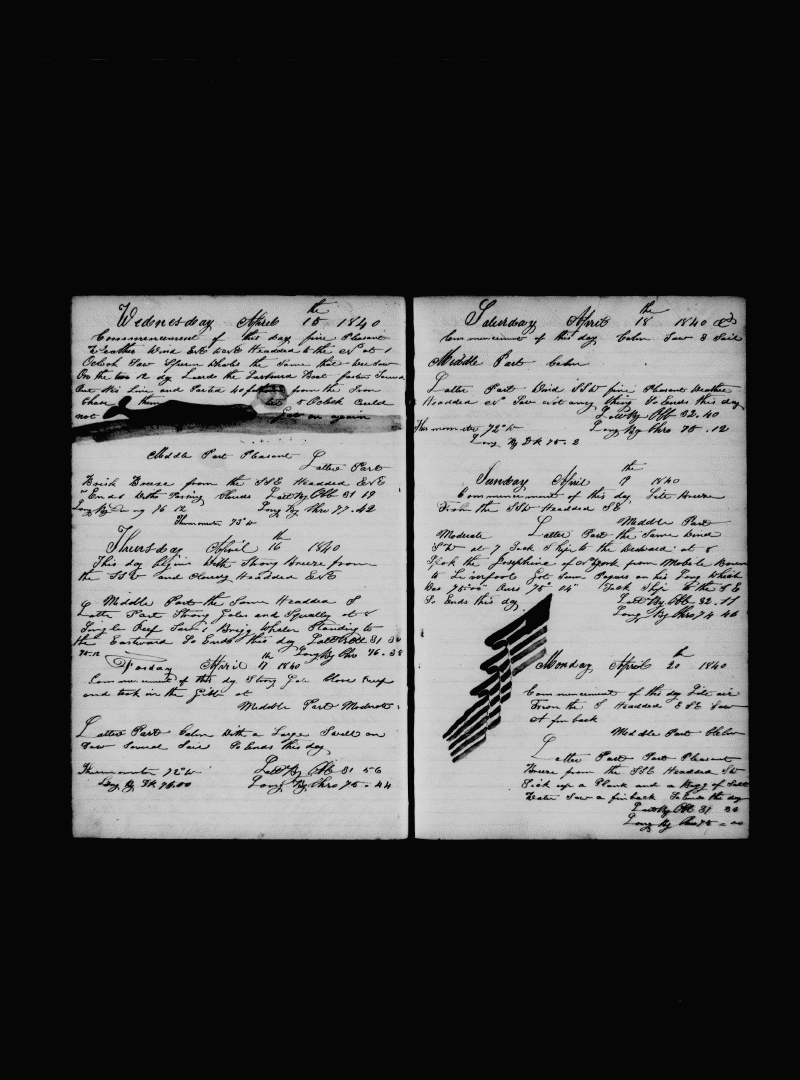 Wednesday April 15th 1840
Commencement of this day fine Pleasant
Weather Wind Headed to the at 1
Oclock Saw Sperm Whales the Same that we Saw
On the Lowrd the Larboard Boat
Out His Line and Parted 40 from the Iron
Chase them 5 Oclock Could
not Get on again
Middle Part Pleasant Latter Part
Brisk Breeze from the SSE Headed
Ends With Passing Clouds Latt By Obb 31 19
Long By 76 12 Long By Chro 77.42
Thermometer 73°
Thursday April 16th 1840
This day begins With Strong Breeze from
the SSW and Clowdy Headed
Middle Part the Same Headed
Latter Part Strong Gales and Squally at 8
Single Reef Saw Brigg Whaler Standing to
the Eastward So Ends this day Latt By Obb 31
Long By Chro 76.38
Friday April 17th 1840
Commencement of this dy Strong Gale Close Reef
and took in the Gibb at
Middle Part Moderate
Latter Part Calm With a Large Swell on
Saw Several Sail So Ends this day
Thermometer 72° Latt By Obb 31 56
Long By Chro 75.44
Saturday April 18th 1840
Commencement of this day Calm Saw 3 Sail
Middle Part Calm
Latter Part Wind SSW fine Pleasant Weather
Headed Saw not any thing So Ends this day
Latt By Obb 32.40
Thermometer 72° Long By Chro 75.12
Long By 75.2
Sunday April 19th 1840
Commencement of this day Lite Breeze
From the SSW Headed SE
Middle Part
Moderate Latter Part the Same Wind
SW at 7 Tack Ship to the Westward at 8
Spok the Josephine of N York from Mobile Bound
to Liverpool Got Sum Papers on his Long Which
Was 75°00" Ours 75° 04" Tack Ship to the S E
So Ends this day Latt By Obb 32.11
Long By Chro 74 46
Monday April 20th 1840
Commencement of this dy Lite air
From the S Headed ESE Saw
A fin back
Middle Part Calm
Latter Part Pleasant
Breeze from the SSE Headed SW
Pick up a Plank and a of
Water Saw a finback So Ends this day
Latt By Obb 31
Long By Chro 75